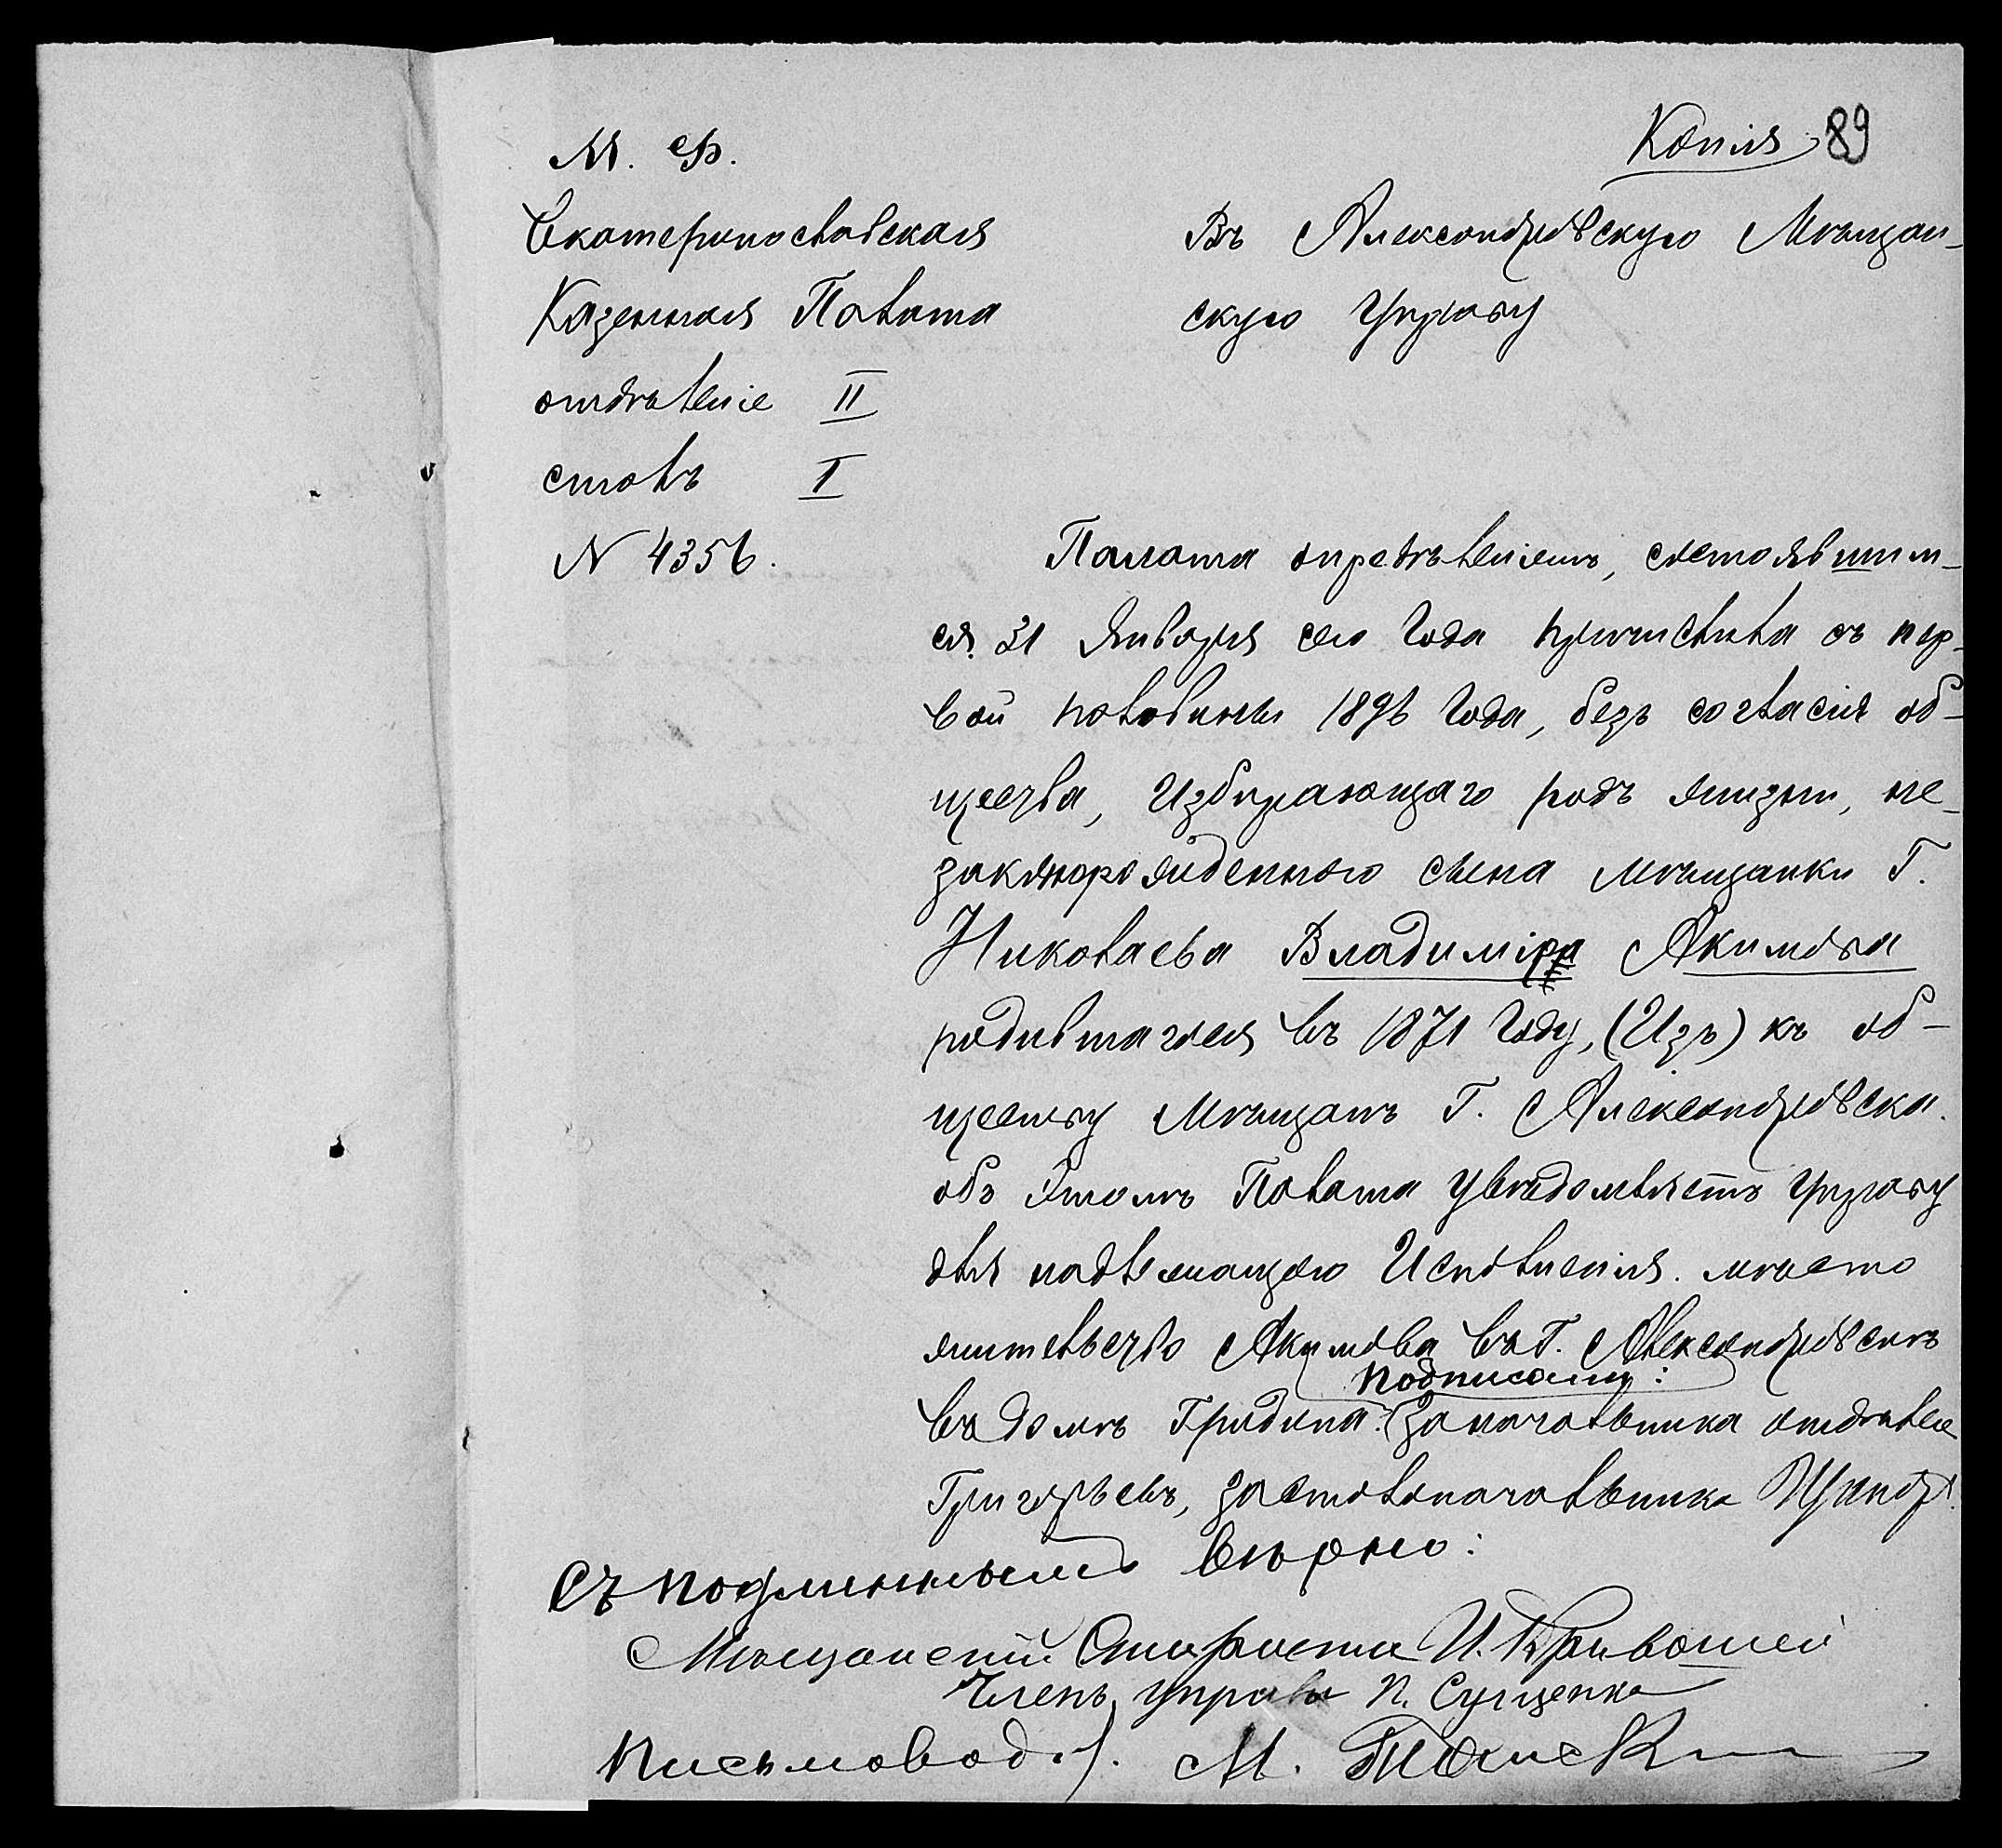 Копия 89
М. Ф.
Екатеринославская
Казенная Палата
отдѣленіе II
столъ I
N 4356.
Въ Александровскую Мѣщан-
скую Управу
Палата опредѣленіемъ, состоявшим-
ся 31 Января сего Года причислила съ пер-
вой половины 1896 Года, безъ согласія об-
щества, Избирающаго родъ жизни, не-
законнорожденного сына мѣщанки Г.
Николаева Владиміра Акимова
родившагося въ 1871 Году, (Изъ) къ об-
ществу Мѣщанъ Г. Александровска.
объ этомъ Палата увѣдомляетъ управу
для надлежащего Исполненія. мѣсто
жительство Акимова въ Г. Александровскѣ
подписали:
въ домѣ Гридина. За начальника отдѣле
Григорьевъ, за столоначальника
Съ подлиннымъ вѣрно:
Мѣщанскій Староста И. Кривошей
Членъ управы П. Сущенко
Письмовод. М.